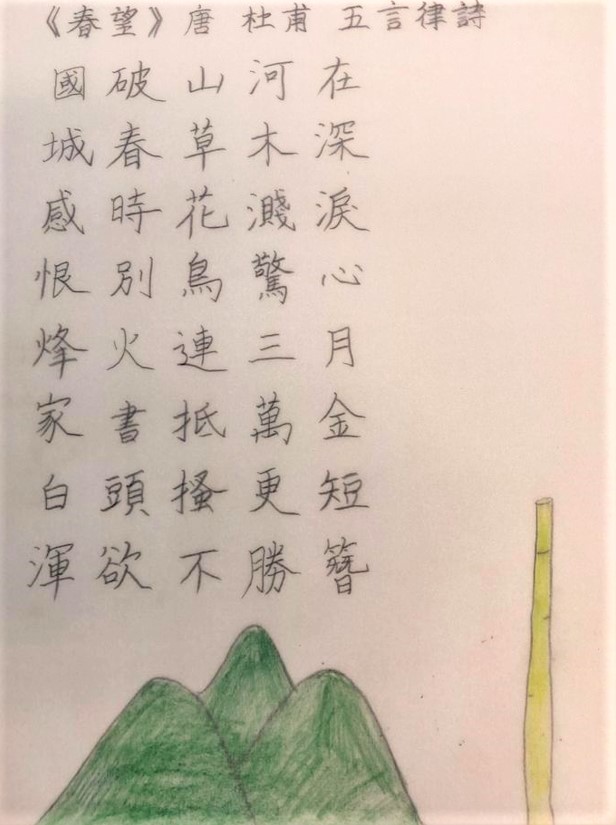 《春望》唐 杜甫 五言律詩
國破山河在
城春草木深
感時花濺淚
恨別鳥驚心
烽火連三月
家書抵萬金
白頭搔更短
渾欲不勝簪